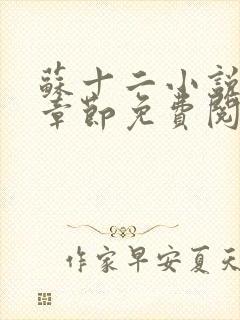 蘇十二小說
章節免費閱
作家早安夏天